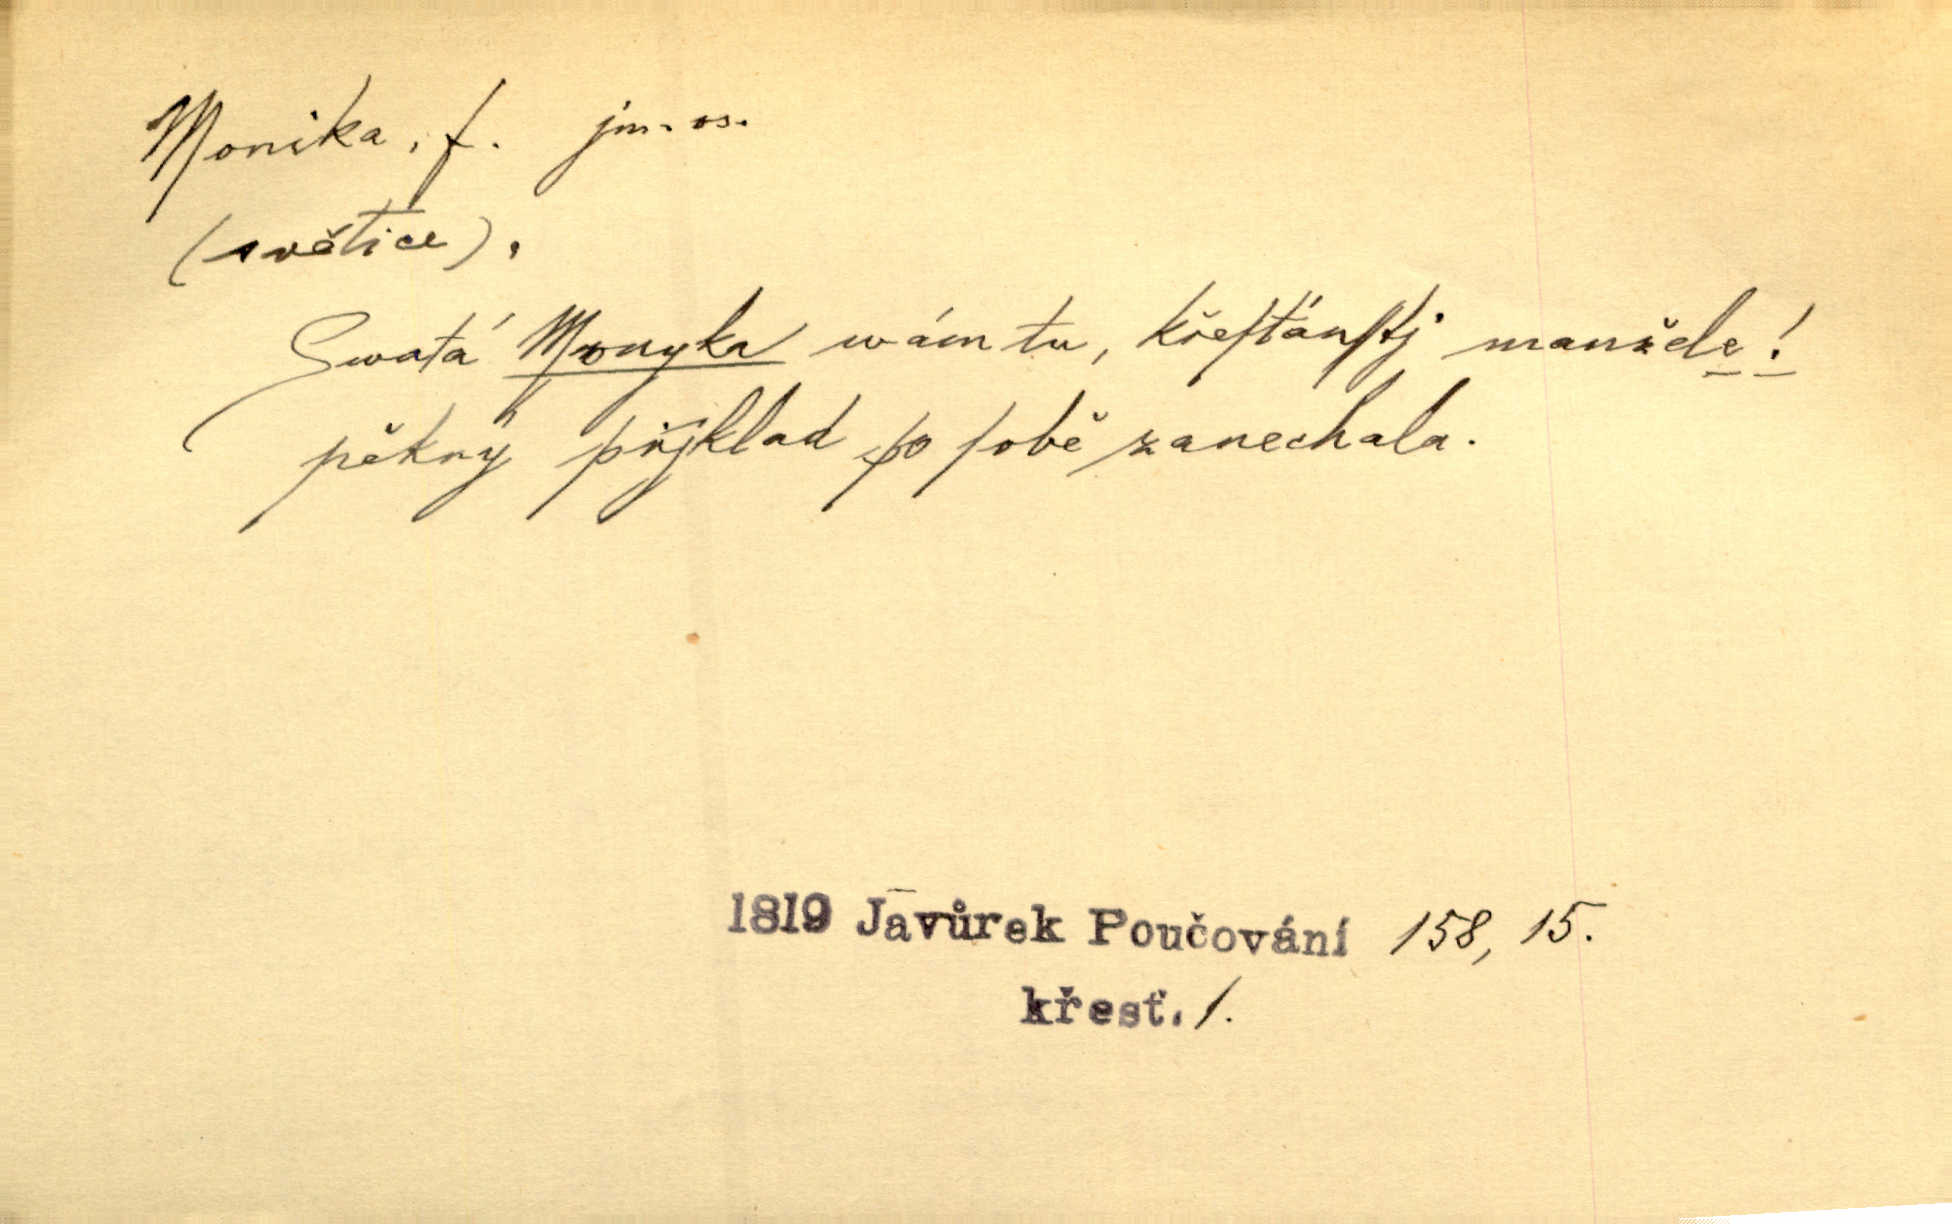 Monika, f. jm. os.
(světice).
Swatá Monyka wám tu, křeſťánſstj manžele!
pěkný přjklad po ſobě zanechala.
1819 Javůrek Poučování 158, 15.
křesť. 1.